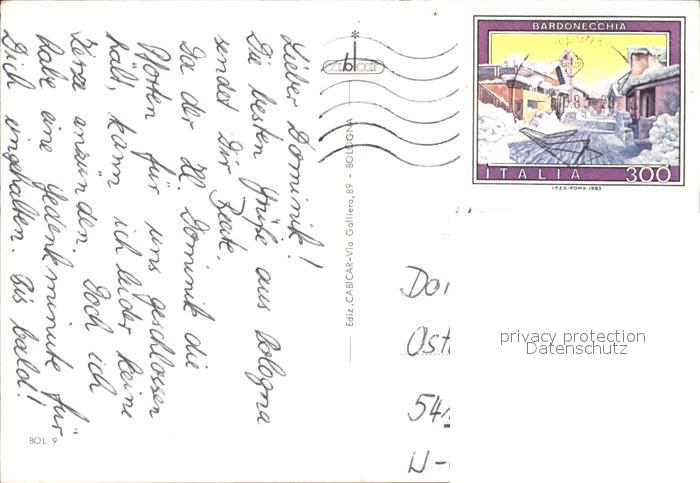 Lieber Dominik!
Die besten Grüße aus Bologna
sendet Dir Beate.
Da der Hl. Dominik die
Pforten für uns geschlossen
hält, kann ich leider keine
Kerze anzünden. Doch ich
habe eine Gedenkminute für
Dich eingehalten. Bis bald!
BOL 9
Ediz. CABICAR-Via Galliera, 89 - BOLOGNA
BARDONECCHIA
ITALIA 300
I.P.Z.S.-ROMA-1983
Ost
privacy protection
Datenschutz